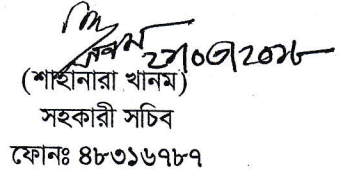 (শাহানারা খানম)
সহকারী সচিব
ফোনঃ ৪৮৩১৬৭৮৭